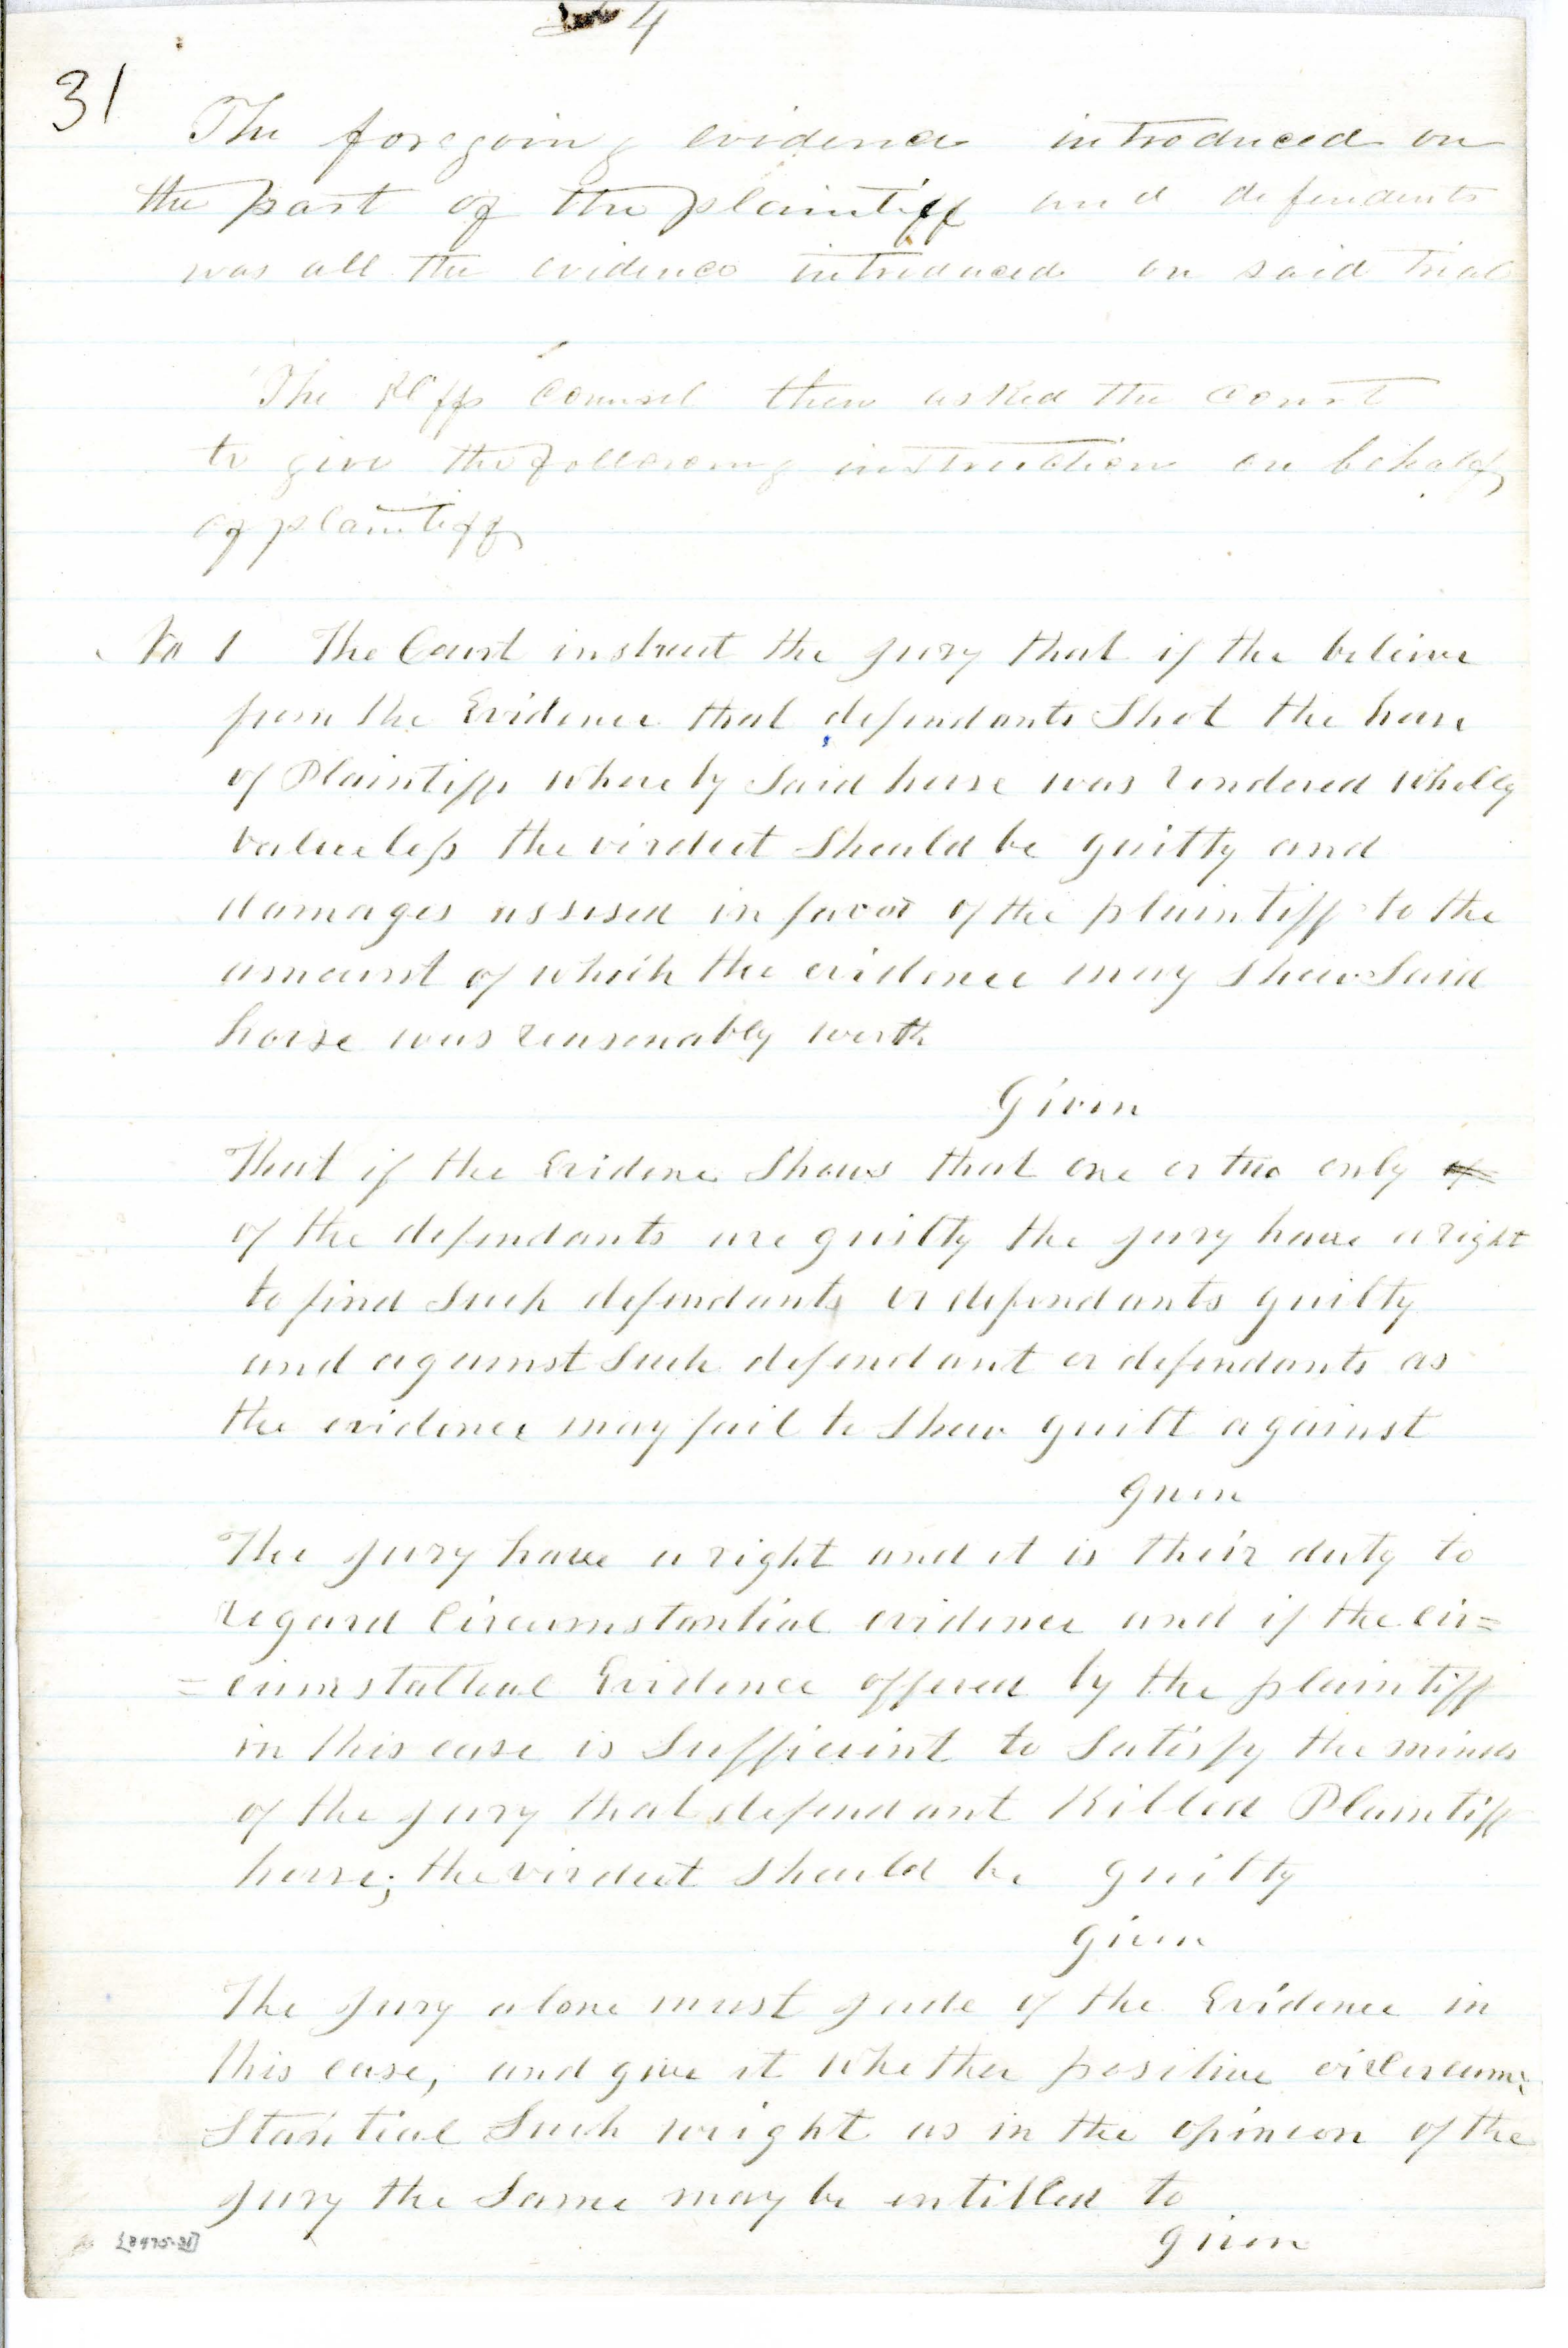 4
31
The foregoing evidence introduced on
the part of the plaintiff and defendants
was all the evidence introduced on said trial
The Plff Counsel then asked the Court
to give the following instruction on behalf
of plaintiff
No 1 The Court instruct the jury that if the believe
from the Evidence that defendants Shot the horse
of Plaintiff whereby Said horse was rendered wholly
valueless the virdict Should be guilty and
damages assesed in favor of the plaintiff to the
amount of which the evidence may Show Said
horse was reasonably worth
Given
That if the Evidence Shows that one or two only of
of the defendants are guilty the jury have a right
to find Such defendants or defendants guilty
and against Such defendant or defendants as
the evidence may fail to Show guilt against
given
The jury have a right and it is their duty to
regard Circumstantial evidence and if the Cir=
=cumstatteal Evidence offered by the plaintiff
in this case is Sufficient to Satisfy the minds
of the jury that defendant Killed Plaintiff
horse; the virdict Should be guilty
given
The jury alone must jude of the Evidence in
this case, and give it whether positive or Circum=
Stantial Such weight as in the opinion of the
jury the Same may be entitled to
given
[8475-31]